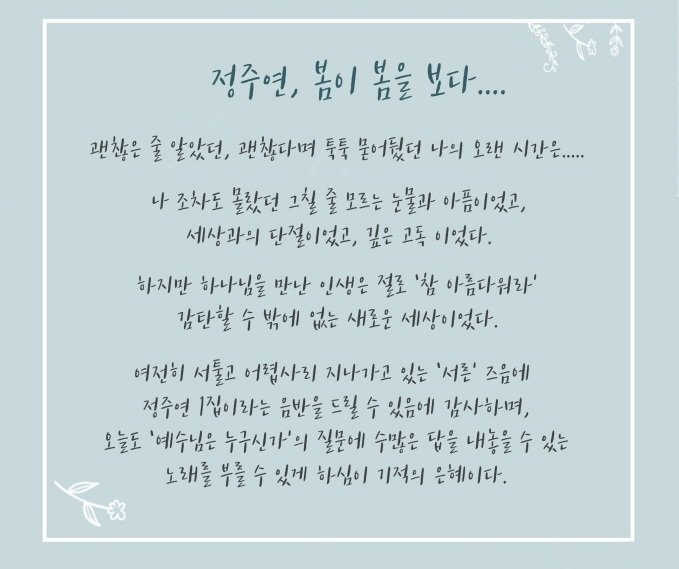 정주연, 봄이 봄을 보다....
괜찮은 줄 알았던, 괜찮다며 툭툭 묻어뒀던 나의 오랜 시간은.....
나 조차도 몰랐던 그칠 줄 모르는 눈물과 아픔이었고,
세상과의 단절이었고, 깊은 고독 이었다.
하지만 하나님을 만난 인생은 절로 '참 아름다워라'
감탄할 수 밖에 없는 새로운 세상이었다.
여전히 서툴고 어렵사리 지나가고 있는 '서른' 즈음에
정주연 1집이라는 음반을 드릴 수 있음에 감사하며,
오늘도 '예수님은 누구신가'의 질문에 수많은 답을 내놓을 수 있는
노래를 부를 수 있게 하심이 기적의 은혜이다.